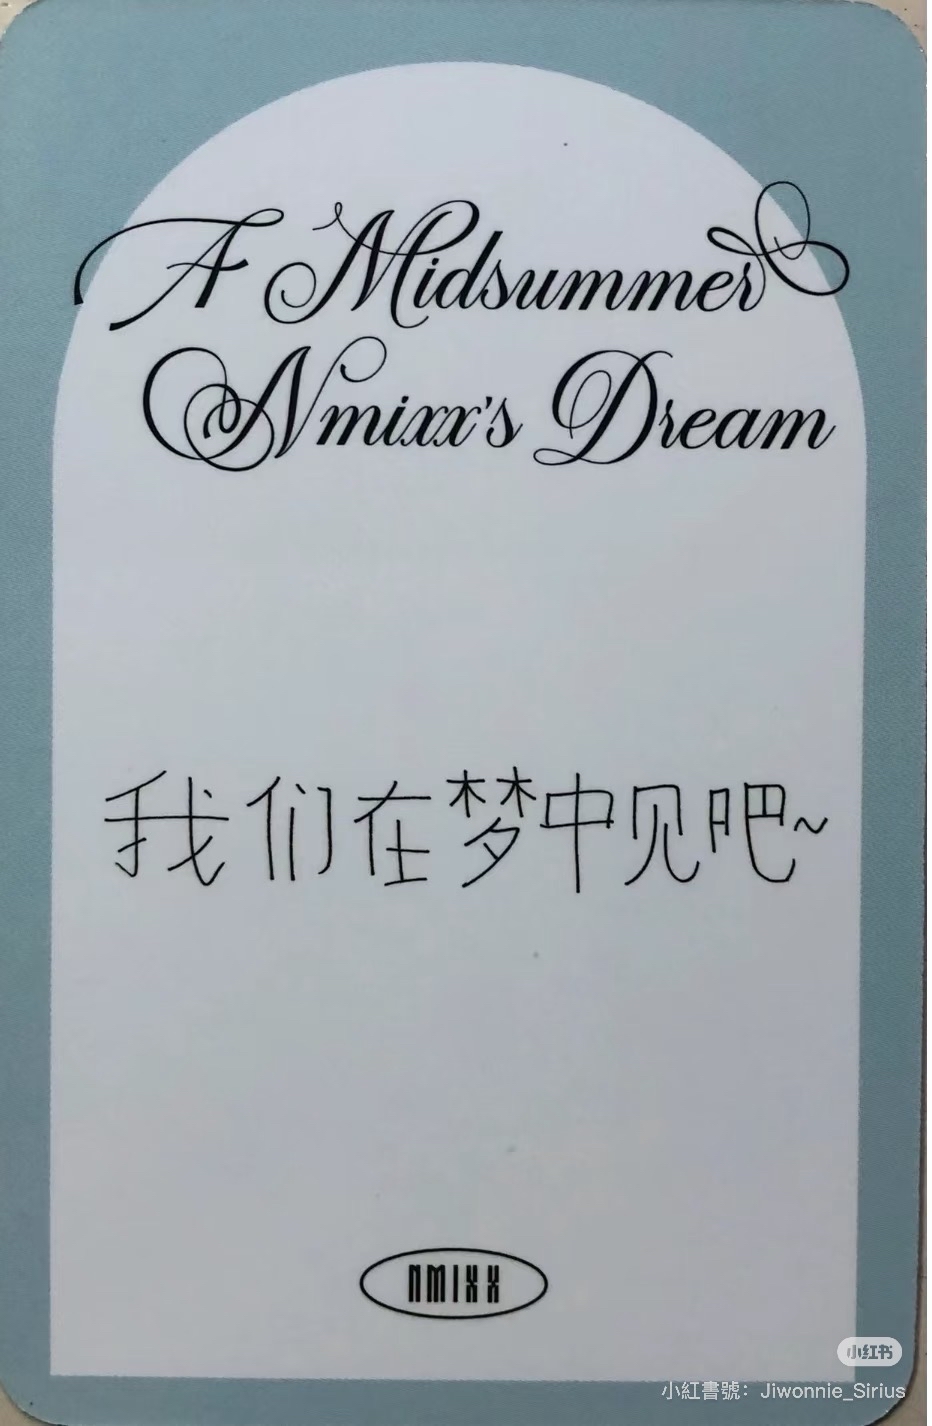 A Midsummer
Nmixx's Dream
我们在梦中见吧~
NMIXX
小红书
小紅書號: Jiwonnie_Sirius